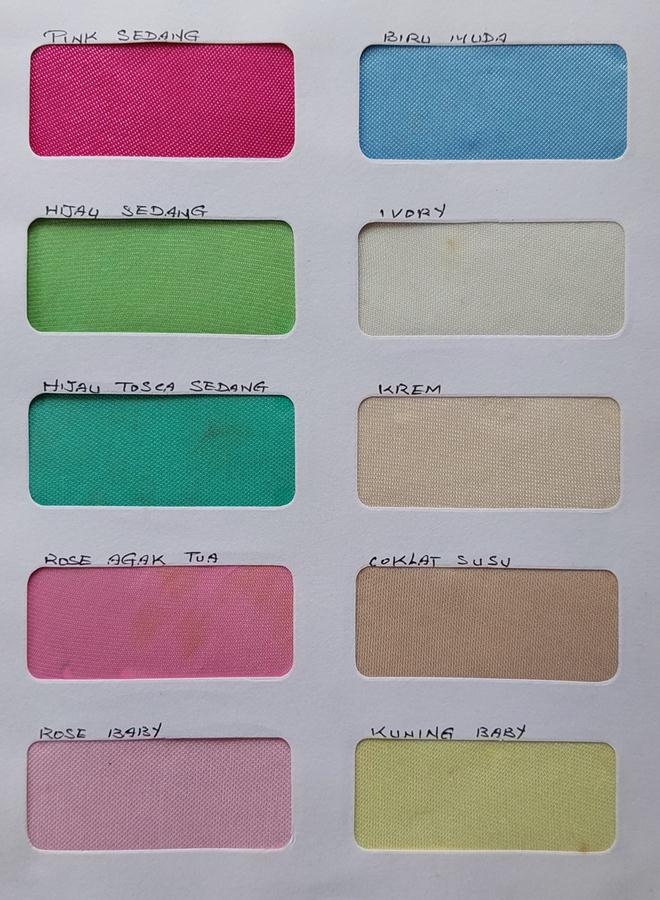 PINK SEDANG
BIRU MUDA
HIJAU SEDANG
IVORY
HIJAU TOSCA SEDANG
KREM
ROSE AGAK TUA
COKLAT SUSU
ROSE BABY
KUNING BABY